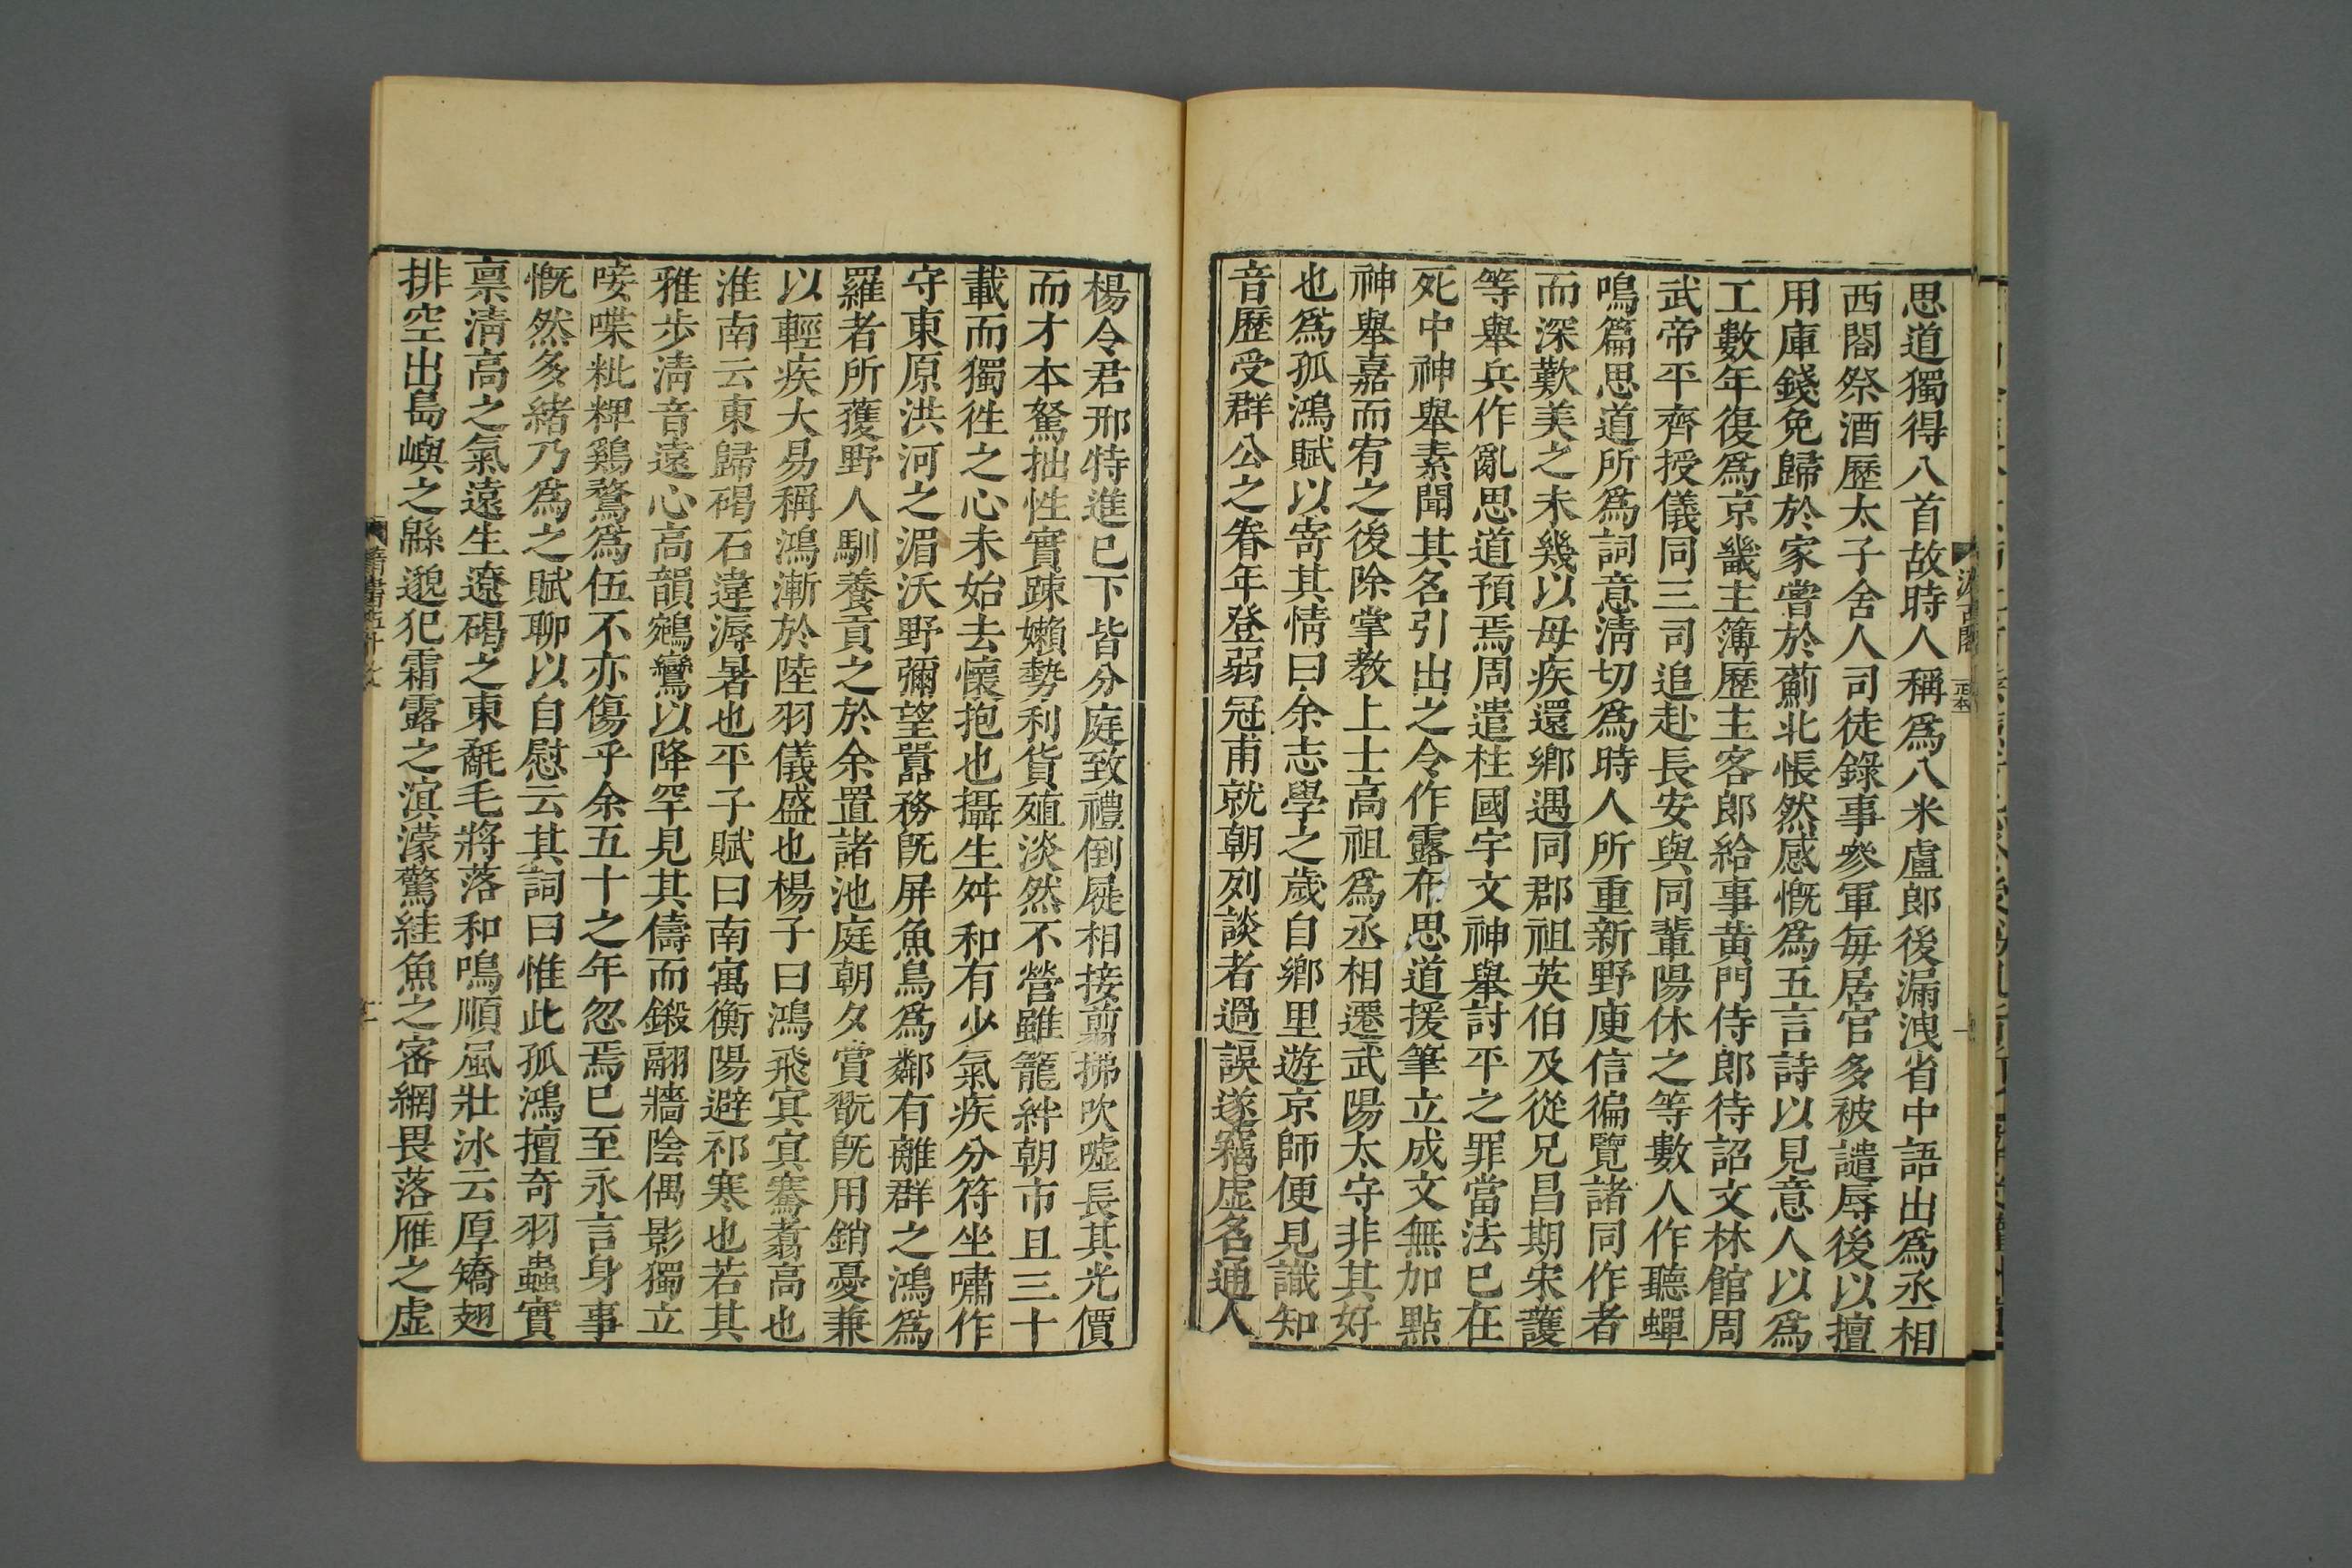 思道獨得八首故時人稱爲八米盧郎後漏洩省中語出爲丞相
西閤祭酒歷太子舍人司徒錄事參軍每居官多被譴辱後以擅
用庫錢免歸於家嘗於薊北悵然感慨爲五言詩以見意人以爲
工數年復爲京畿主簿歷主客郎給事黃門侍郎待詔文林館周
武帝平齊授儀同三司追赴長安與同輩陽休之等數人作聽蟬
鳴篇思道所爲詞意淸切爲時人所重新野庾信徧覽諸同作者
而深歎美之未幾以母疾還鄉遇同郡祖英伯及從兄昌期宋護
等舉兵作亂思道預焉周遣柱國宇文神舉討平之罪當法已在
死中神舉素聞其名引出之令作露布思道援筆立成文無加點
神舉嘉而宥之後除掌教上士高祖爲丞相遷武陽太守非其好
也爲孤鴻賦以寄其情曰余志學之歲自鄉里遊京師便見識知
音歷受群公之眷年登弱冠甫就朝列談者過誤遂竊虛名通人
楊令君邢特進已下皆分庭致禮倒屣相接翦拂吹噓長其光價
而才本駑拙性實踈嬾勢利貨殖淡然不營雖籠絆朝市且三十
載而獨徃之心未始去懷抱也攝生舛和有少氣疾分符坐嘯作
守東原洪河之湄沃野彌望囂務旣屛魚鳥爲鄰有離群之鴻爲
羅者所獲野人馴養貢之於余置諸池庭朝夕賞翫旣用銷憂兼
以輕疾大易稱鴻漸於陸羽儀盛也楊子曰鴻飛冥冥騫翥高也
淮南云東歸碣石違溽暑也平子賦曰南寓衡陽避祁寒也若其
雅步淸音遠心高韻鵷鸞以降罕見其儔而鎩翮牆陰偶影獨立
唼喋粃粺鷄鶩爲伍不亦傷乎余五十之年忽焉已至永言身事
慨然多緖乃爲之賦聊以自慰云其詞曰惟此孤鴻擅奇羽蟲實
禀淸高之氣遠生遼碣之東氄毛將落和鳴順風壯冰云厚矯翅
排空出島嶼之緜邈犯霜露之溟濛驚絓魚之密網畏落雁之虛